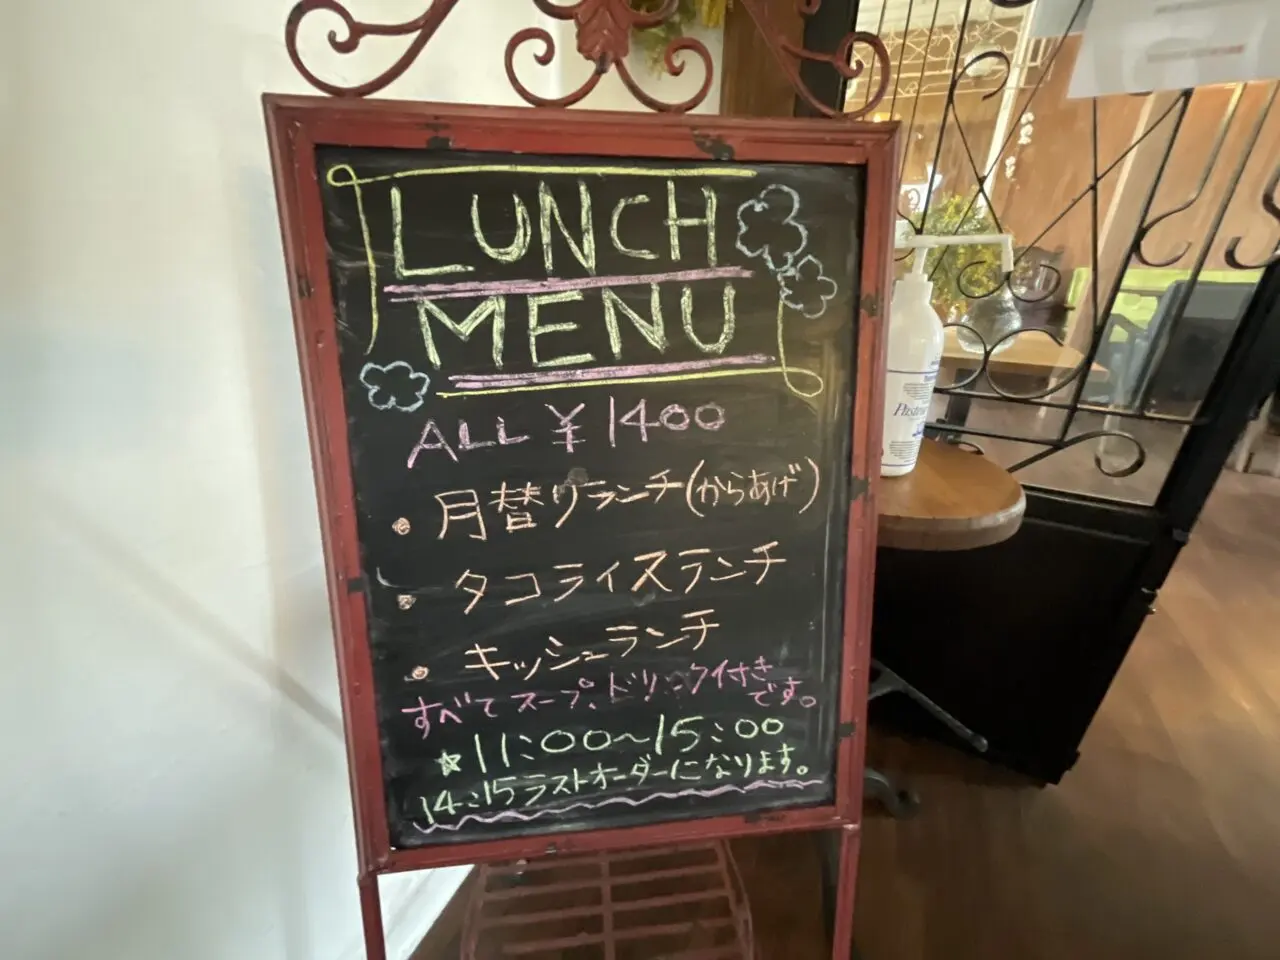 LUNCH
MENU
ALL ¥1400
・月替りランチ(からあげ)
・タコライスランチ
・キッシュランチ
すべてスープ、ドリンク付きです。
☆11:00~15:00
14:15ラストオーダーになります。